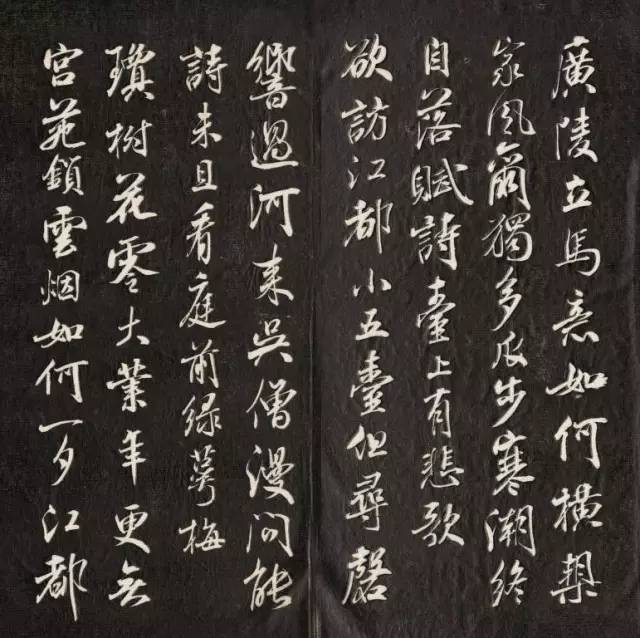 廣陵立馬意如何橫槊
家風爾獨多瓜步寒潮終
自落賦詩臺上有悲歌
欲訪江都小五臺但尋磬
響過河來吳僧漫問能
詩未且看庭前綠萼梅
瓊樹花零大業年更無
宮苑鎖雲烟如何一夕江都